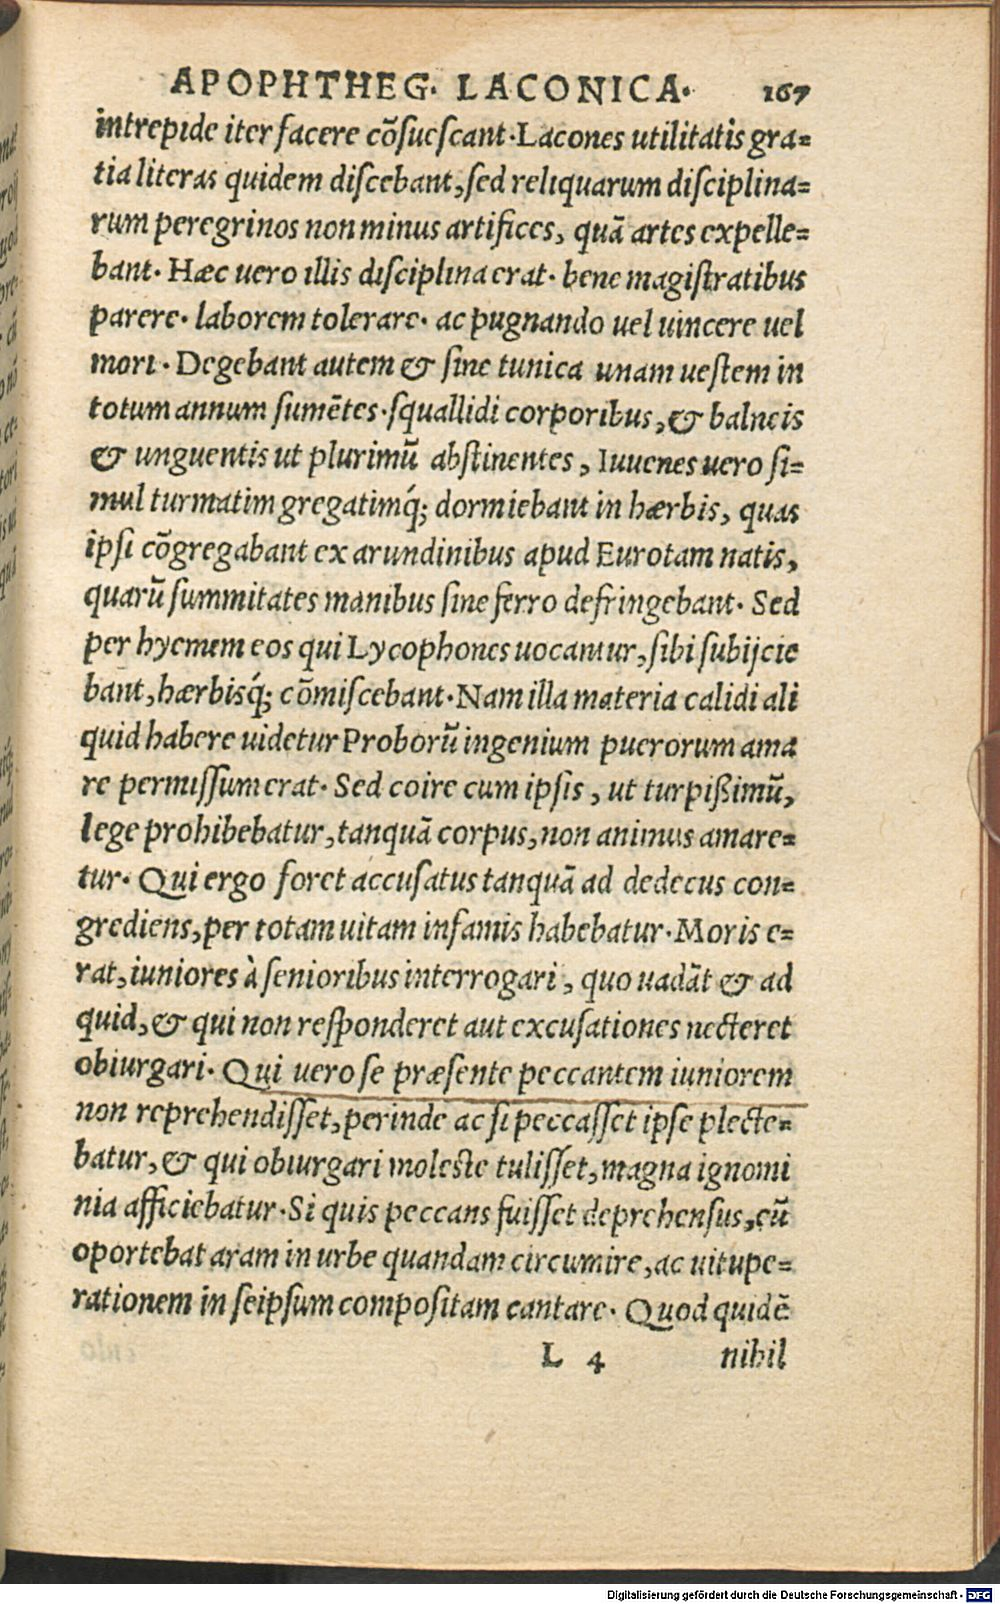 APOPHTHEG. LACONICA. 167
intrepide iter facere cōsuescant. Lacones utilitatis gra=
tia literas quidem discebant, sed reliquarum disciplina=
rum peregrinos non minus artifices, quā artes expelle=
bant. Hæc uero illis disciplina erat. bene magistratibus
parere. laborem tolerare. ac pugnando uel uincere uel
mori. Degebant autem & sine tunica unam uestem in
totum annum sumētes. squallidi corporibus, & balneis
& unguentis ut plurimū abstinentes, Iuuenes uero si=
mul turmatim gregatimq́; dormiebant in hærbis, quas
ipsi cōgregabant ex arundinibus apud Eurotam natis,
quarū summitates manibus sine ferro defringebant. Sed
per hyemem eos qui Lycophones uocantur, sibi subijcie
bant, hærbisq́; cōmiscebant. Nam illa materia calidi ali
quid habere uidetur Proborū ingenium puerorum ama
re permissum erat. Sed coire cum ipsis, ut turpißimū,
lege prohibebatur, tanquā corpus, non animus amare=
tur. Qui ergo foret accusatus tanquā ad dedecus con=
grediens, per totam uitam infamis habebatur. Moris e=
rat, iuniores à senioribus interrogari, quo uadāt & ad
quid, & qui non responderet aut excusationes necteret
obiurgari. Qui uero se præsente peccantem iuniorem
non reprehendisset, perinde ac si peccasset ipse plecte=
batur, & qui obiurgari moleste tulisset, magna ignomi
nia afficiebatur. Si quis peccans fuisset deprehensus, eū
oportebat aram in urbe quandam circumire, ac uitupe=
rationem in seipsum compositam cantare. Quod quidē
L 4 nihil
Digitalisierung gefördert durch die Deutsche Forschungsgemeinschaft - DFG